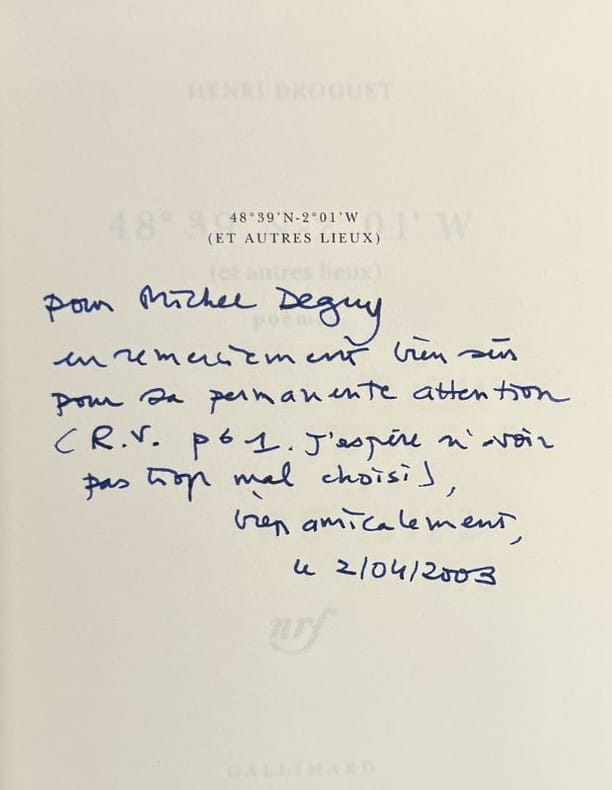 HENRI DROGUET
48°39'N-2°01'W
(ET AUTRES LIEUX)
48° 39'N-2°01' W
(et autres lieux)
poèmes
pour Michel Deguy
en remerciement bien sûr
pour sa permanente attention
(R.V. p 61. J'espère n'avoir
pas trop mal choisi),
bien amicalement,
le 2/04/2003
nrf
GALLIMARD